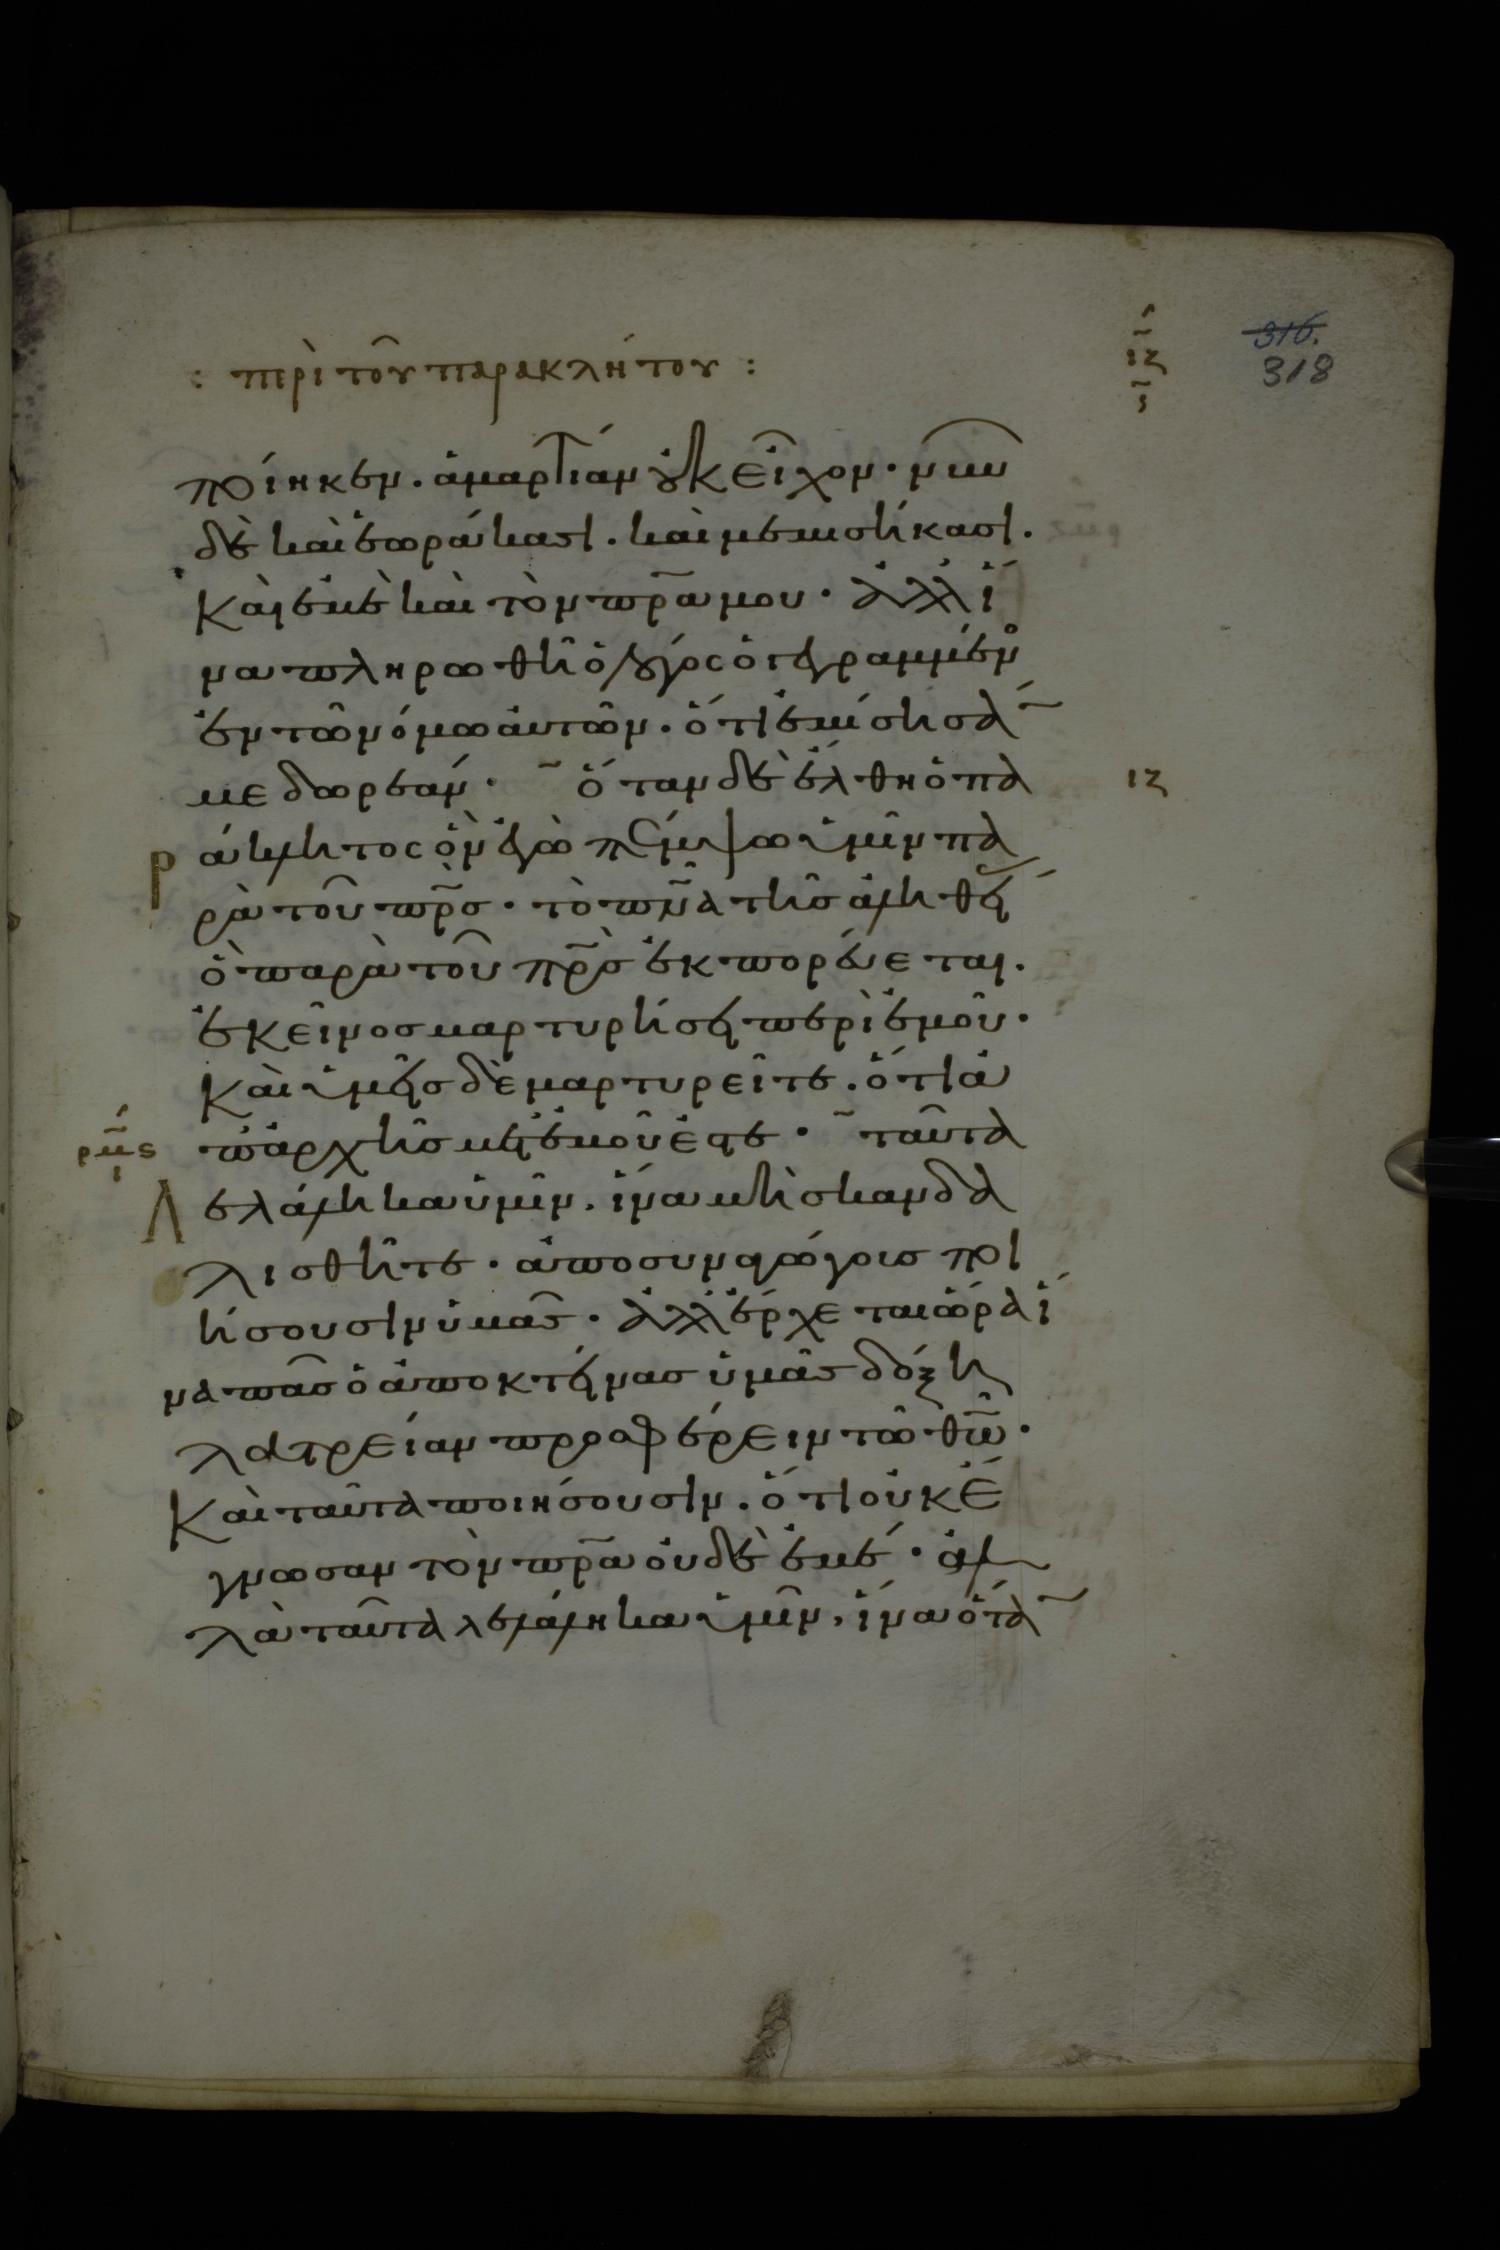 : περὶ τοῦ παρακλήτου :
ιζ
316.
318
ποίηκεν. ἁμαρτίαν οὐκ εἶχον· νῦν
δὲ καὶ ἑωράκασι. καὶ μεμισήκασι.
Καὶ ἐμὲ καὶ τὸν π̅ρ̅α μου· ἀλλ ἵ
να πληρωθῆ ὁ λόγος ὁ γεγραμμέν
ἐν τῶ νόμω αὐτῶν. ὅτι ἐμίσησά̅
με δωρεάν· ὅταν δὲ ἔλθη ὁ πα
ιζ
ράκλητος ὃν ἐγὼ πέμψω ὑμῖν πα
ρὰ τοῦ π̅ρ̅σ· τὸ π̅ν̅α τῆς ἀληθεί
ὃ παρὰ τοῦ π̅ρ̅σ ἐκπορεύεται.
ἐκεῖνοσ μαρτυρήσει περὶ ἐμοῦ·
Καὶ ὑμεῖσ δὲ μαρτυρεῖτε. ὅτι ἀ
ρμς
π ἀρχῆσ μετ ἐμοῦ ἐστε· ταῦτα
λελάληκα ὑμῖν, ἵνα μὴ σκανδα
λισθῆτε· ἀποσυναγώγοισ ποι
ήσουσιν ὑμᾶσ· ἀλλ ἔρχεται ὥρα ἵ
να πᾶσ ὁ ἀποκτείνασ ὑμᾶσ δόξη
λατρείαν προσφέρειν τῶ θ̅ω̅·
Καὶ ταῦτα ποιήσουσιν. ὅτι οὐκ ἔ
γνωσαν τὸν π̅ρ̅α οὐδὲ ἐμέ· ἀλ
λὰ ταῦτα λελάληκα ὑμῖν, ἵνα ὅτα̅